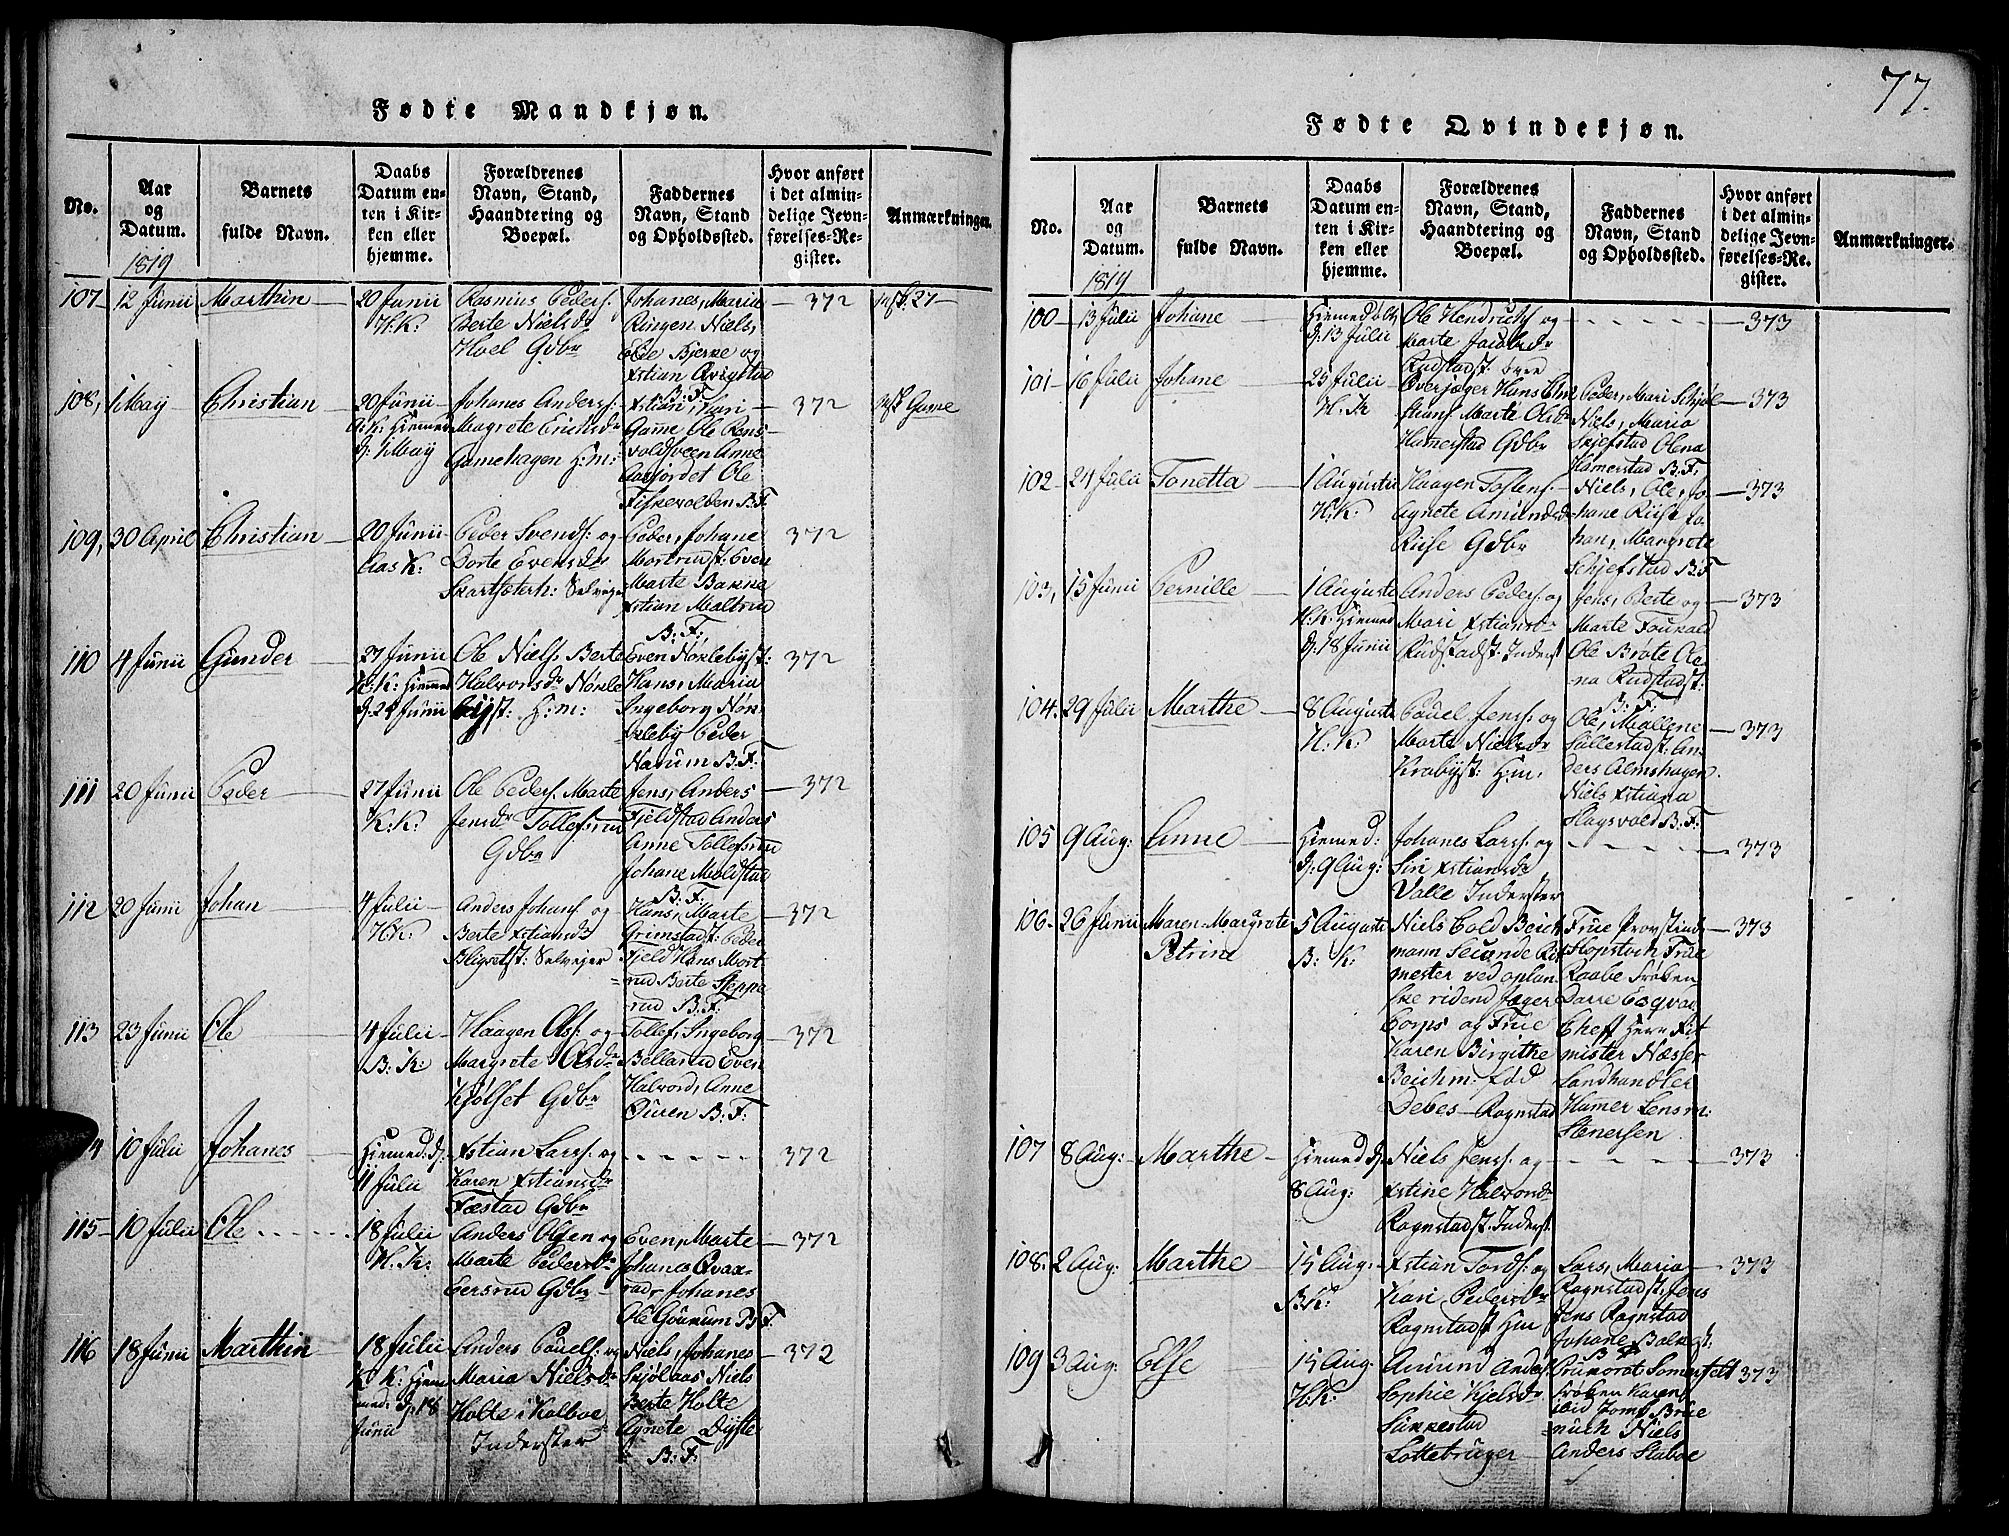 77.
Fødte Mandkjøn.
No.
Aar
og
Datum.
1819
Barnets
fulde Navn.
Daabs
Datum en-
ten i Kir-
ken eller
hjemme.
Forældrenes
Navn, Stand,
Haandtering og
Boepæl.
Faddernes
Navn, Stand
og Opholdssted.
Hvor anført
i det almin-
delige Jevn-
førelses-Re-
gister.
Anmærkninger.
107 12 Junii Marthin 20 Junii
H: K:
Rasmus Peders:
Berte Nielsdr
Hoel Gdbr
Johanes, Maria
Ringen Niels,
Else Bjerke og
Xstian Qvigstad
B: F:
372
108, 1 May Christian 20 Junii
K: Hiemed
d: 1 May
Johanes Anders:
Magrete Ericksdr
Gamehagen H:m:
Xstian, Kari
Game Ole Rens-
voldsveen Anne
Aasjordet Ole
Fiskevolden B: F
372
Game
109, 30 April Christian 20 Junii
Aas K:
Peder Svends: og
Dorte Evensdr
Skartsæterh: Selveger
Peder, Johane
Mortrudst: Even
Marte Bakke
Xstian Maltrud
B: F:
372
110 4 Junii Gunder 27 Junii
K: K: Hiemed
d: 24 Junii
Ole Niels: Berte
Halvorsdr Nøkle
byst: H:m:
Even Nøklebyst:
Hans, Maria
Ingeborg Nøk-
leby Peder
Narum B: F:
372
111 20 Junii Peder 27 Junii
K: K:
Ole Peders: Marte
Jensdr Tollefsrud
Gdbr
Jens, Anders
Fjeldstad Anders
Anne Tollefsrud
Johane Moldstad
B: F:
372
112 20 Junii Johan 4 Julii
H: K:
Anders Johans: og
Berte Xstiansdr
Selveier
Hans, Marte
Grimstadst: Peder
Fjeld Hans Mort-
rud Berte Steppe
rud B: F:
372
113 23 Junii Ole 4 Julii
B: K:
Haagen Ols: og
Margrete Olsdr
Kjølset Gdbr
Tollef, Ingeborg
Bellerud Even
Halvord, Anne
B: F:
372
10 Julii Johanes Hiemed: d:
11 Julii
Xstian Lars: og
Karen Xstiansdr
Fæstad Gdbr
372
115 10 Julii Ole 18 Julii
H. K:
Anders Olsen og
Marte Pedersdr
Eersrud Gdbr
Even, Marte
Johanes Qvær-
rud, Johanes
Ole Gounum B: F:
372
116 18 Junii Marthin 18 Julii
K K: Hiem
med: d: 18
Junii
Anders Pouels: og
Maria Nielsdr
Holte i Kolboe
Inderster
Niels, Johanes
Skjolaas Niels
Berte Holte
Agnete Dyste
B: F:
372
Fødte Qvindekjøn.
No.
Aar
og
Datum.
1819
Barnets
fulde Navn.
Daabs
Datum en-
ten i Kir-
ken eller
hjemme.
Forældrenes
Navn, Stand,
Haandtering og
Boepæl.
Faddernes
Navn, Stand
og Opholdssted.
Hvor anført
i det almin-
delige Jevn-
førelses-Re-
gister.
Anmærkninger.
100 13 Julii Johane Hiemed døbt
d: 13 Julii
Ole Hendrichs: og
Marte Jacobsdr
Rudstadst:
373
101 16 Julii Johane 25 Julii
H. K
Overjæger Hans Chri
stians: Marte Olsdr
Hamerstad Gdbr
Peder, Mari Skjøl
Niels, Maria
Skjefstad Olena
Hamerstad B: F:
373
102 24 Julii Tonetta 1 Augusti
H. K:
Haagen Tostens:
Agnete Amundsdr
Riise Gdbr
Niels, Ole, Jo-
hane Riise Jo-
han, Margrete
Schjefstad B: F
373
103, 15 Junii Pernille 1 Augusti
H. K: Hiemed
d: 18 Junii
Anders Peders: og
Mari Xstiansdr
Rudstadst: Inderst
Jens, Berte og
Marte Foukald
Ole Brote Ole-
na Rudstadst:
B: F:
373
104. 29 Julii Marthe 8 Augusti
H. K:
Pouel Jens: og
Marte Nielsdr
Krabyst: H:m:
Ole, Mallene
Sællestadst: An-
ders Almshagen
Niels Xstiana
Slagsvold B: F:
373
105 9 Aug: Anne Hiemed:
d: 9 Aug:
Johanes Lars: og
Siri Xstiansdr
Valle Inderster
373
106. 26 Junii Maren Margrete
Petrine
5 Augusti
B: K:
Niels Cold Beich
mann Secunde Rit
mester ved oplan
ske ridend Jæger
Corps og Frue
Karen Birgithe
Beichm: fød
Debes Rognstad
Frue Provstinde
Stopstoch Frue
Raabe Frøken
Darre Esqvad
Cheff Herr Rit
mister Næsser
Landhandler
Hamer Lensm:
Stenersen
373
107 8 Aug: Marthe Hiemed d:
8 Aug:
Niels Jens: og
Xstine Halvorsdr
Rognstadst. Inderst
373
108. 2 Aug: Marthe 15 Aug:
B K:
Xstian Tords: og
Kari Pedersdr
Rognstadst Hm
Lars, Maria
Rognstadst: Jens
Jens Rognstad
Johane Balkest:
B F
373
109 3 Aug: Else 15 Aug:
H: K:
Amund Anders:
Sophie Kjelsdr
Sukkestad
Lottebruger
Pruvorst Somerfelt
Frøken Karen
ibid Jomf: Brue
nuch Niels
Anders Staboe
373